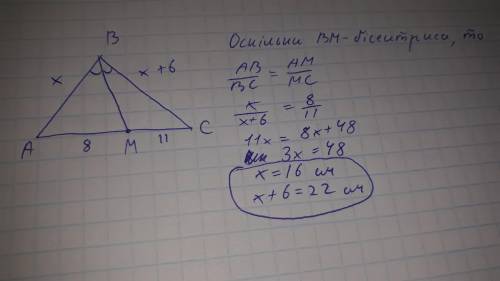 B
x
x+6
A
8
M
11
C
Оскільки BM-бісектриса, то
AB/BC = AM/MC
x/x+6 = 8/11
11x = 8x+48
3x = 48
x = 16 см
x+6 = 22 см